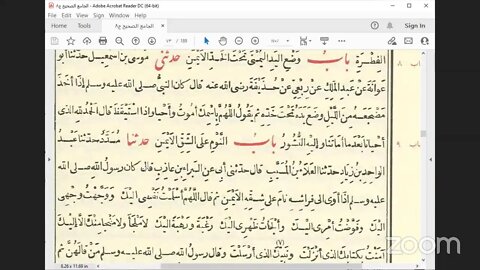 الجامع الصحيح ج٨ - Adobe Acrobat Reader DC (64-bit)
الفطرة باب وضع اليد اليمنى تحت الخد الأيمن حدثني موسى بن إسمعيل حدثنا أبو
عوانة عن عبد الملك عن ربعي عن حذيفة رضي الله عنه قال كان النبي صلى الله عليه وسلم إذا أخذ
مضجعه من الليل وضع يده تحت خده ثم يقول اللهم باسمك أموت وأحيا وإذا استيقظ قال الحمد لله الذي
أحيانا بعد ما أماتنا وإليه النشور باب النوم على الشق الأيمن حدثنا مسدد حدثنا عبد
الواحد بن زياد حدثنا العلاء بن المسيب قال حدثني أبي عن البراء بن عازب قال كان رسول الله صلى الله
عليه وسلم إذا أوى إلى فراشه نام على شقه الأيمن ثم قال اللهم أسلمت نفسي إليك ووجهت وجهي
إليك وفوضت أمري إليك وألجأت ظهري إليك رغبة ورهبة إليك لا ملجأ ولا منجا منك إلا إليك
آمنت بكتابك الذي أنزلت ونبيك الذي أرسلت وقال رسول الله صلى الله عليه وسلم من قالهن ثم
8.26 x 11.69 in
zoom